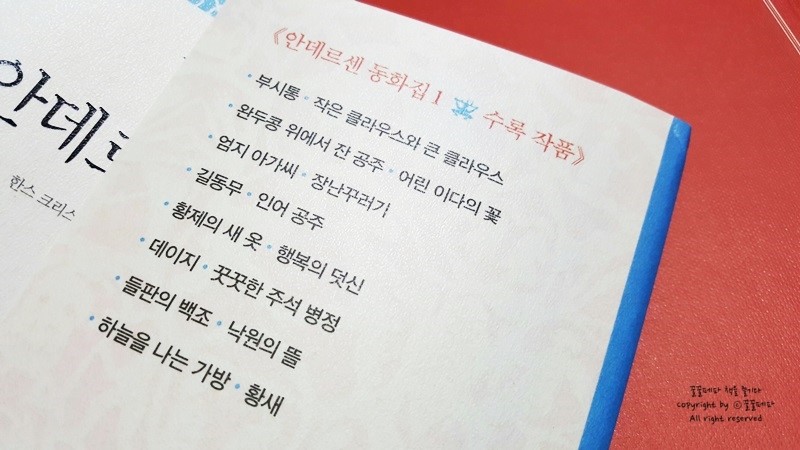 안데르
한스 크리스
《안데르센 동화집 1 수록 작품》
· 부시통 · 작은 클라우스와 큰 클라우스
· 완두콩 위에서 잔 공주 · 어린 이다의 꽃
· 엄지 아가씨 · 장난꾸러기
· 길동무 · 인어 공주
· 황제의 새 옷 · 행복의 덧신
· 데이지 · 꿋꿋한 주석 병정
· 들판의 백조 · 낙원의 뜰
· 하늘을 나는 가방 · 황새
copyright by ⓒ
All right reserved